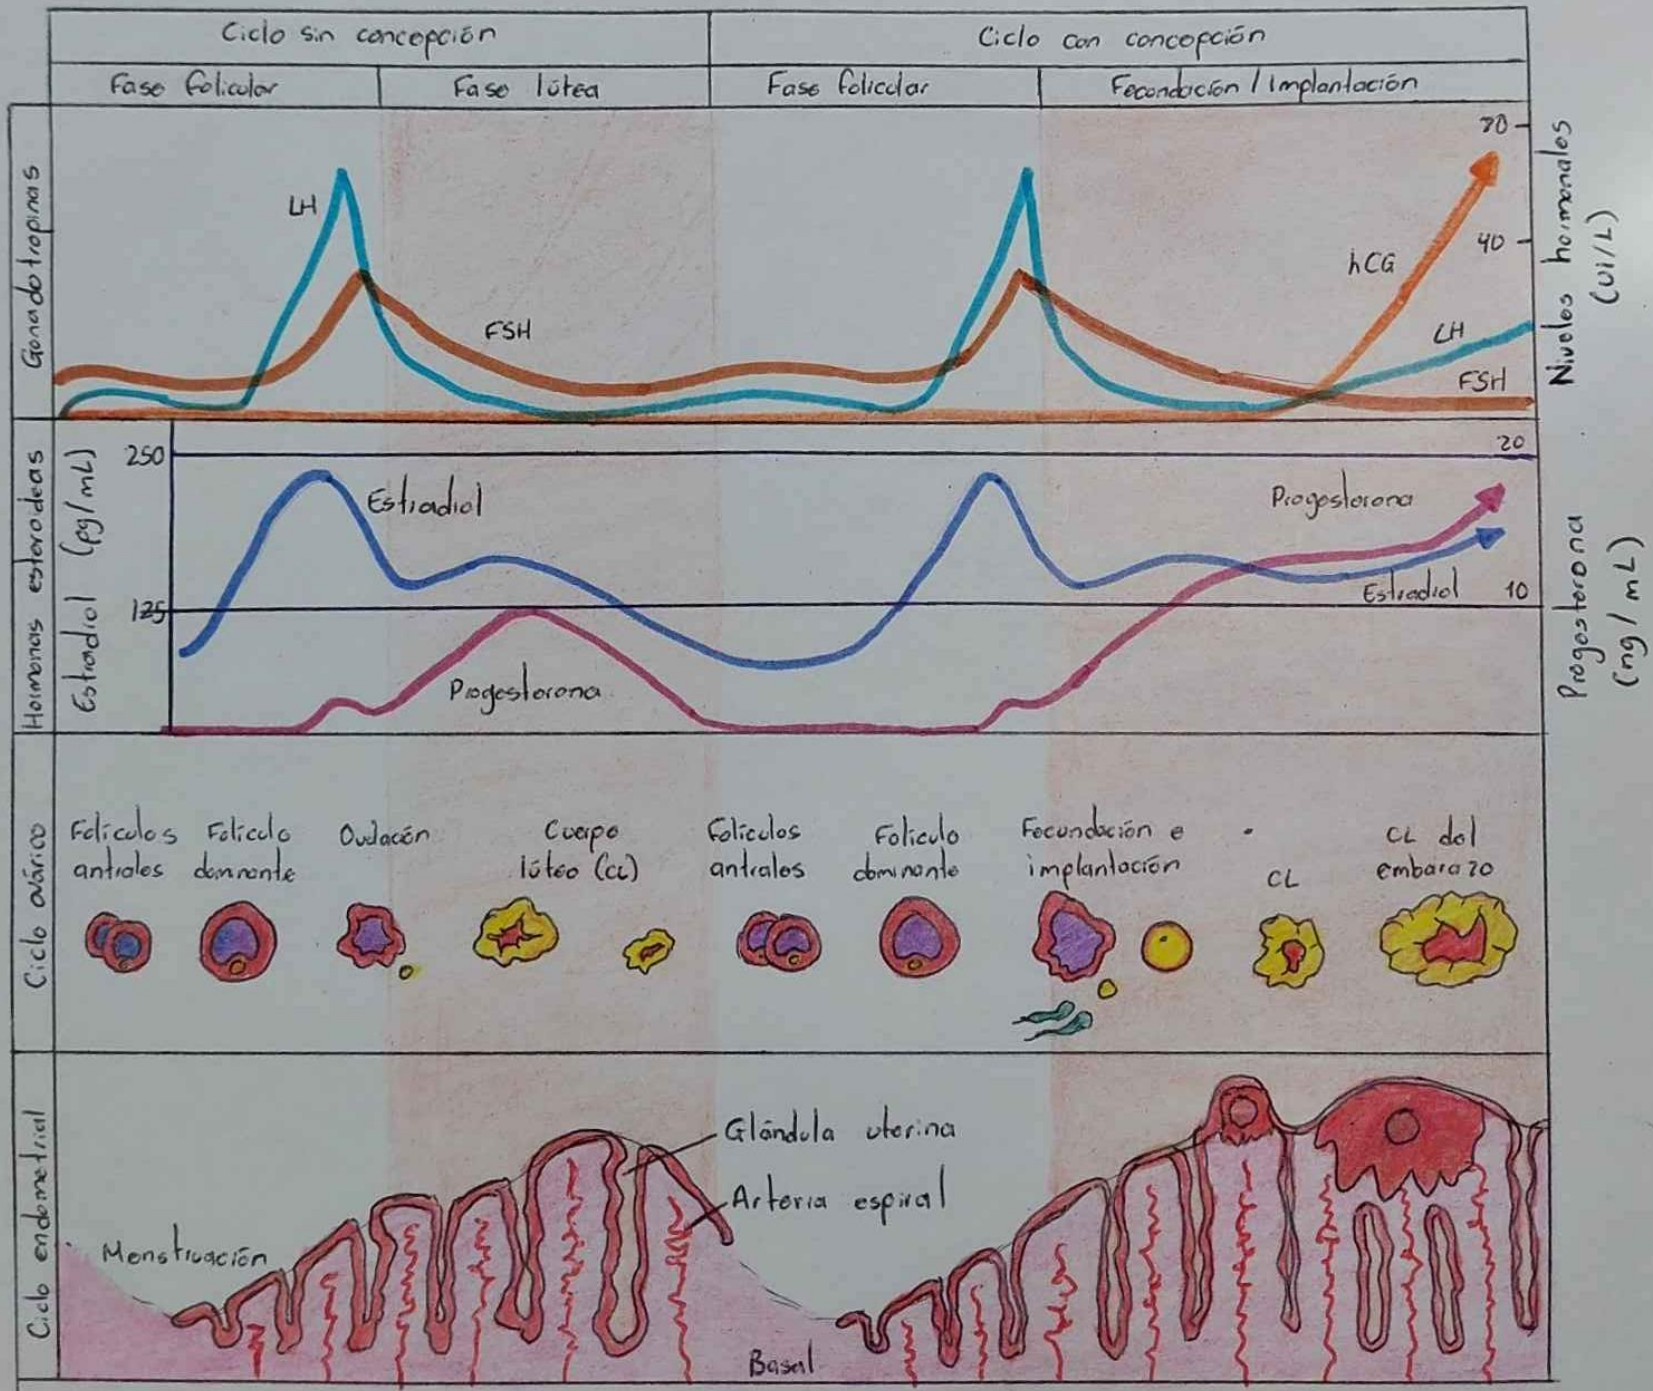 Ciclo sin concepción
Ciclo con concepción
Fase folicular
Fase lútea
Fase folicular
Fecundación / Implantación
Gonadotropinas
LH
FSH
hCG
LH
FSH
40
Niveles hormonales
(UI/L)
Hormonas esteroideas
Estradiol (pg/mL)
250
125
Estradiol
Progesterona
Progesterona
Estradiol
20
10
Progesterona
(ng/mL)
Ciclo ovárico
Folículos
antrales
Folículo
dominante
Ovulación
Cuerpo
lúteo (CL)
Folículos
antrales
Folículo
dominante
Fecundación e
implantación
CL
CL del
embarazo
Ciclo endometrial
Menstruación
Glándula uterina
Arteria espiral
Basal